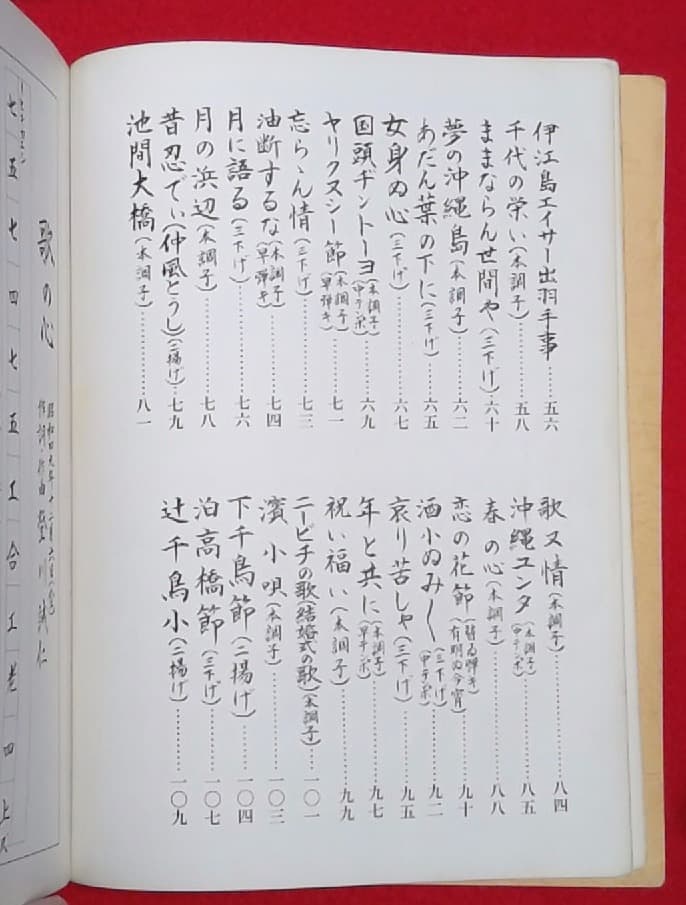 伊江島エイサー出羽手事……五六
千代の栄い(本調子)……五八
ままならん世間や(三下げ)……六十
夢の沖縄島(本調子)……六二
あだん葉の下に(三下げ)……六五
女身ぬ心(三下げ)……六七
国頭ヂントーヨ(本調子 中テンポ)……六九
ヤリクヌシー節(本調子 早弾き)……七一
忘らゝん情(三下げ)……七三
油断するな(本調子 早弾き)……七四
月に語る(三下げ)……七六
月の浜辺(本調子)……七八
昔忍でぃ(仲風とうし)(二揚げ)……七九
池間大橋(本調子)……八一
歌又情(本調子)……八四
沖縄ユンタ(本調子 中テンポ)……八五
春の心(本調子)……八八
恋の花節(替る弾き)(有明ぬ今宵)……九十
酒小ぬみ〱(三下げ)(中テンポ)……九二
哀り苦しゃ(三下げ)……九五
年と共に(本調子 早テンポ)……九七
祝い福い(本調子)……九九
ニービチの歌(結婚式の歌)(本調子)……一〇一
濱小唄(本調子)……一〇三
下千鳥節(二揚げ)……一〇四
泊高橋節(三下げ)……一〇七
辻千鳥小(二揚げ)……一〇九
歌の心
作詞・作曲 登川誠仁
七五七四七五工合工老四上